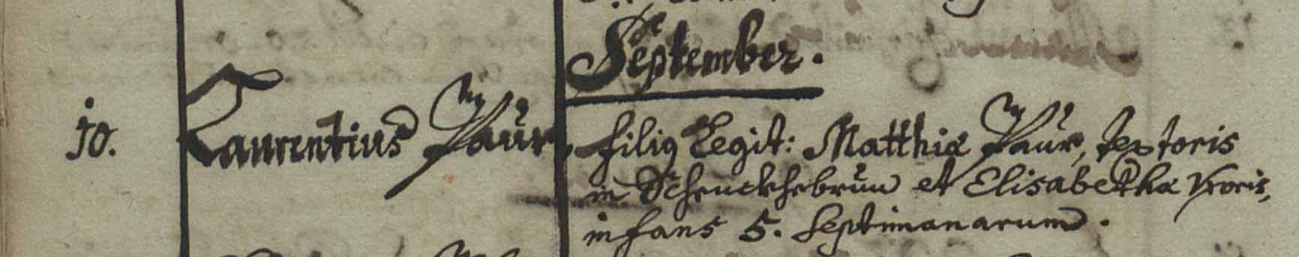 September.
10. Laurentius Paur, filiq Legit: Matthiæ Paur, textoris
in et Elisabethæ uxoris,
infans 5. septimanarum.